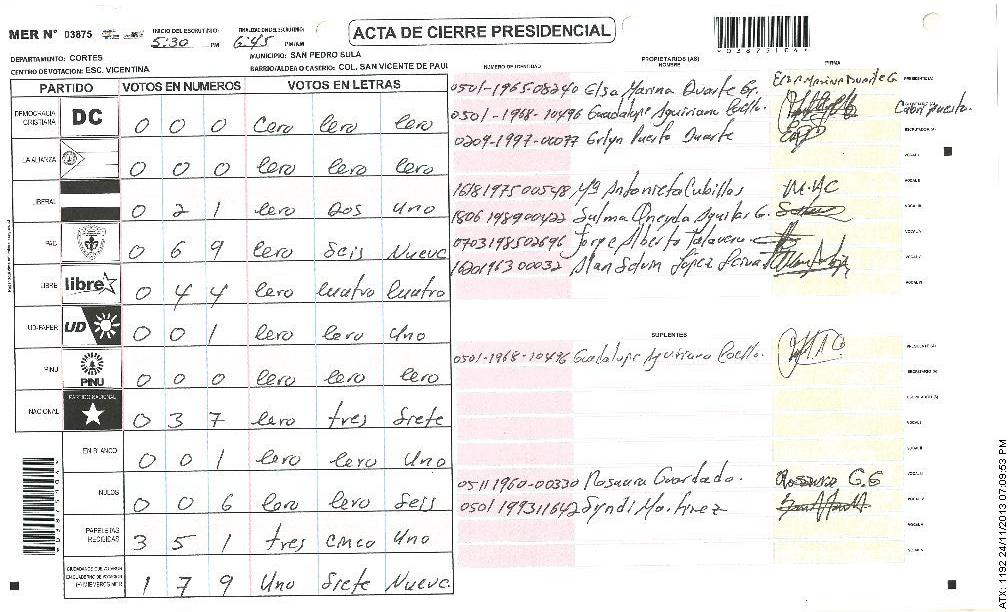 MER N° 03875
INICIO DEL ESCRUTINIO: 5:30 PM
FINALIZACION DEL ESCRUTINIO: 6:45 PM/AM
ACTA DE CIERRE PRESIDENCIAL
DEPARTAMENTO: CORTES
MUNICIPIO: SAN PEDRO SULA
CENTRO DE VOTACION: ESC. VICENTINA
BARRIO/ALDEA O CASERIO: COL. SAN VICENTE DE PAUL
PARTIDO VOTOS EN NUMEROS VOTOS EN LETRAS
DEMOCRACIA CRISTIANA DC 0 0 0 Cero Cero Cero
LA ALIANZA 0 0 0 Cero Cero Cero
LIBERAL 0 2 1 Cero Dos Uno
PAC 0 6 9 Cero Seis Nueve
LIBRE libre 0 4 4 Cero Cuatro Cuatro
UD-FAPER UD 0 0 1 Cero Cero Uno
PINU PINU 0 0 0 Cero Cero Cero
NACIONAL PARTIDO NACIONAL 0 3 7 Cero tres Siete
EN BLANCO 0 0 1 Cero Cero Uno
NULOS 0 0 6 Cero Cero Seis
PAPELETAS RECIBIDAS 3 5 1 tres cinco Uno
CIUDADANOS QUE VOTARON 1 7 9 Uno Siete Nueve
NUMERO DE IDENTIDAD PROPIETARIOS (AS) NOMBRE FIRMA
0501-1965-08240 Elsa Marina Duarte G. Elsa Marina Duarte G. PRESIDENTE(A)
0501-1968-10496 Guadalupe Aguiriano Coello.
0209-1997-00077 Erlyn Puerto Duarte ESCRUTADOR (A)
VOCAL I
16181975 00548 Mª Antonieta Cubillos M.AC VOCAL II
1806 198900422 Sulma Oneyda Aguilar G. VOCAL III
0703198502696 Jorge Alberto Talavera
1620196300032 Alan Selvin López
SUPLENTES
0501-1968-10496 Guadalupe Aguiriano Coello. PRESIDENTE (A)
SECRETARIO (A)
ESCRUTADOR (A)
VOCAL I
VOCAL II
05111960-00330 Rosaura Guardado. Rosaura G.G
0501 199311642 Syndi Martinez
ATX: 1192 24/11/2013 07:09:53 PM